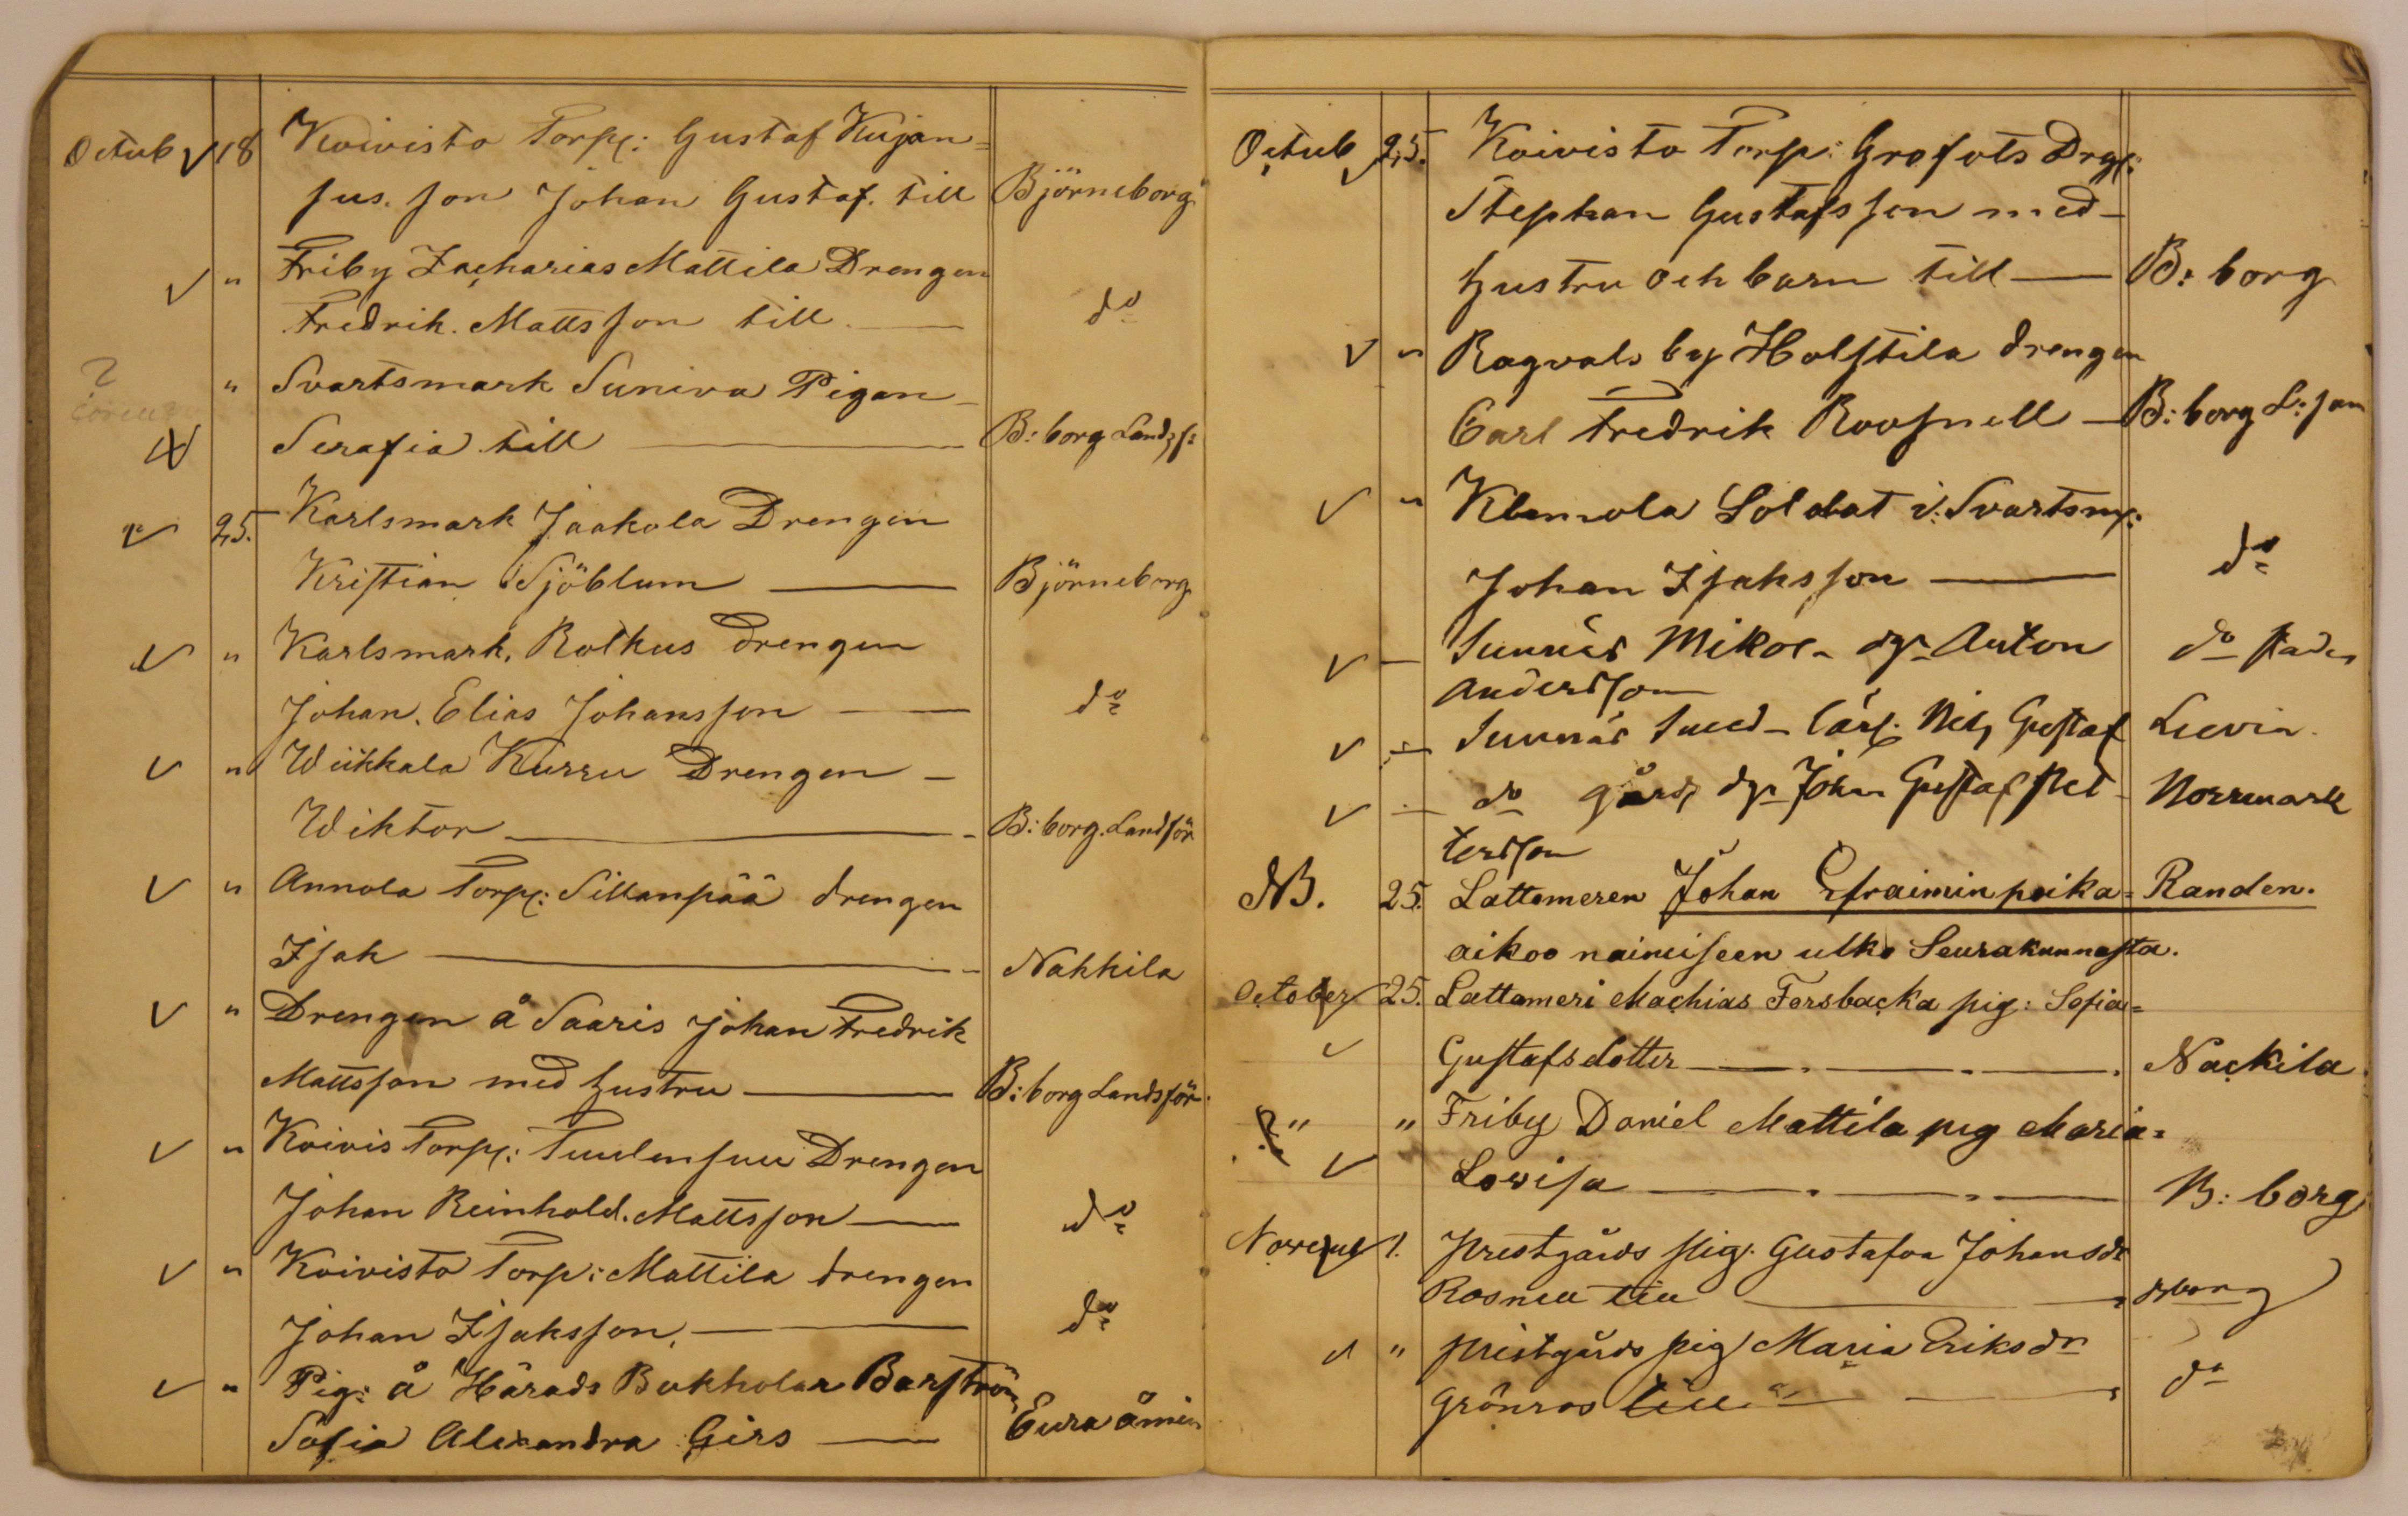 Octub 18 Koivisto Torp: Gustaf Kujan=
sus. son Johan Gustaf. till Björneborg
" Friby Zacharias Mattila Drengen
Fredrik. Mattsson till — do
?
" Svartsmark Suniva Pigan
Serafia till — B: borg Lands f:
25. Karlsmark Jaakola Drengen
Kristian Sjöblum — Björneborg
" Karlsmark, Rotkus drengen
Johan. Elias Johansson — do
" Wiikkala Kurru Drengen —
Wiktor — B: borg. Landsför
" Annola Torp: Sillanpää drengen
Isak — Nakkila
" Drengen å Saaris Johan Fredrik
Mattsson med hustru — B: borg Landsför.
" Koivis Torp: Tuulensuu Drengen
Johan Reinhold. Mattsson — do
" Koivisto Torp: Mattila drengen
Johan Isaksson, — do
" Pig: å Härads Bokholar Barström
Sofia Alexandra Girs — Eura åmin
Octub 25. Koivisto Torp: Grofots Drg:
Stephan Gustafsson med —
hustru och barn till — B: borg
" Ragvals by Holstila drengen
Carl Fredrik Roosnell — B: borg L: san
" Klemola Soldat i: Svartsm:
Johan Isaksson — do
— Sunnäs Mikol- dr Anton do
Andersson
— Sunnäs Smed- lärl. Nils Gustaf Luvia.
— do gårds dr Johan Gustaf Pet- Norrmark
tersson
NB. 25. Lattomeren Johan Efraimin poika= Randen.
aikoo naimiseen ulko Seurakunnasta.
October 25. Lattomeri Machias Forsbacka pig: Sofia=
Gustafsdotter — . — . — . Nackila.
" " Friby Daniel Mattila pig Maria=
Lovisa — . — . — B: borg
1. Prestgårds pig. Gustafva Johansdr
Rosnell till — bborg
" prestgårds pig Maria Eriksdr
Grönros till — do